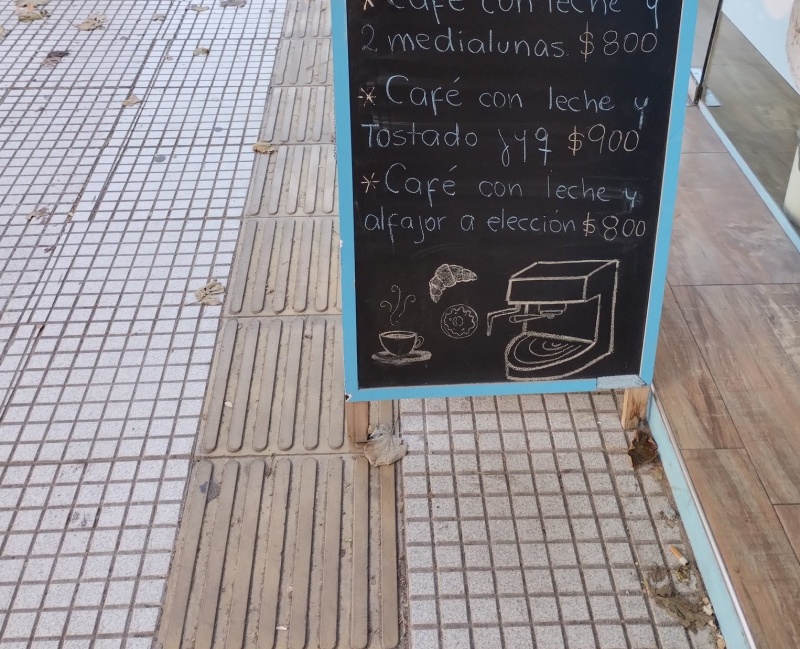 * Café con leche y
2 medialunas $800
* Café con leche y
Tostado jyq $900
* Café con leche y
alfajor a elección $800